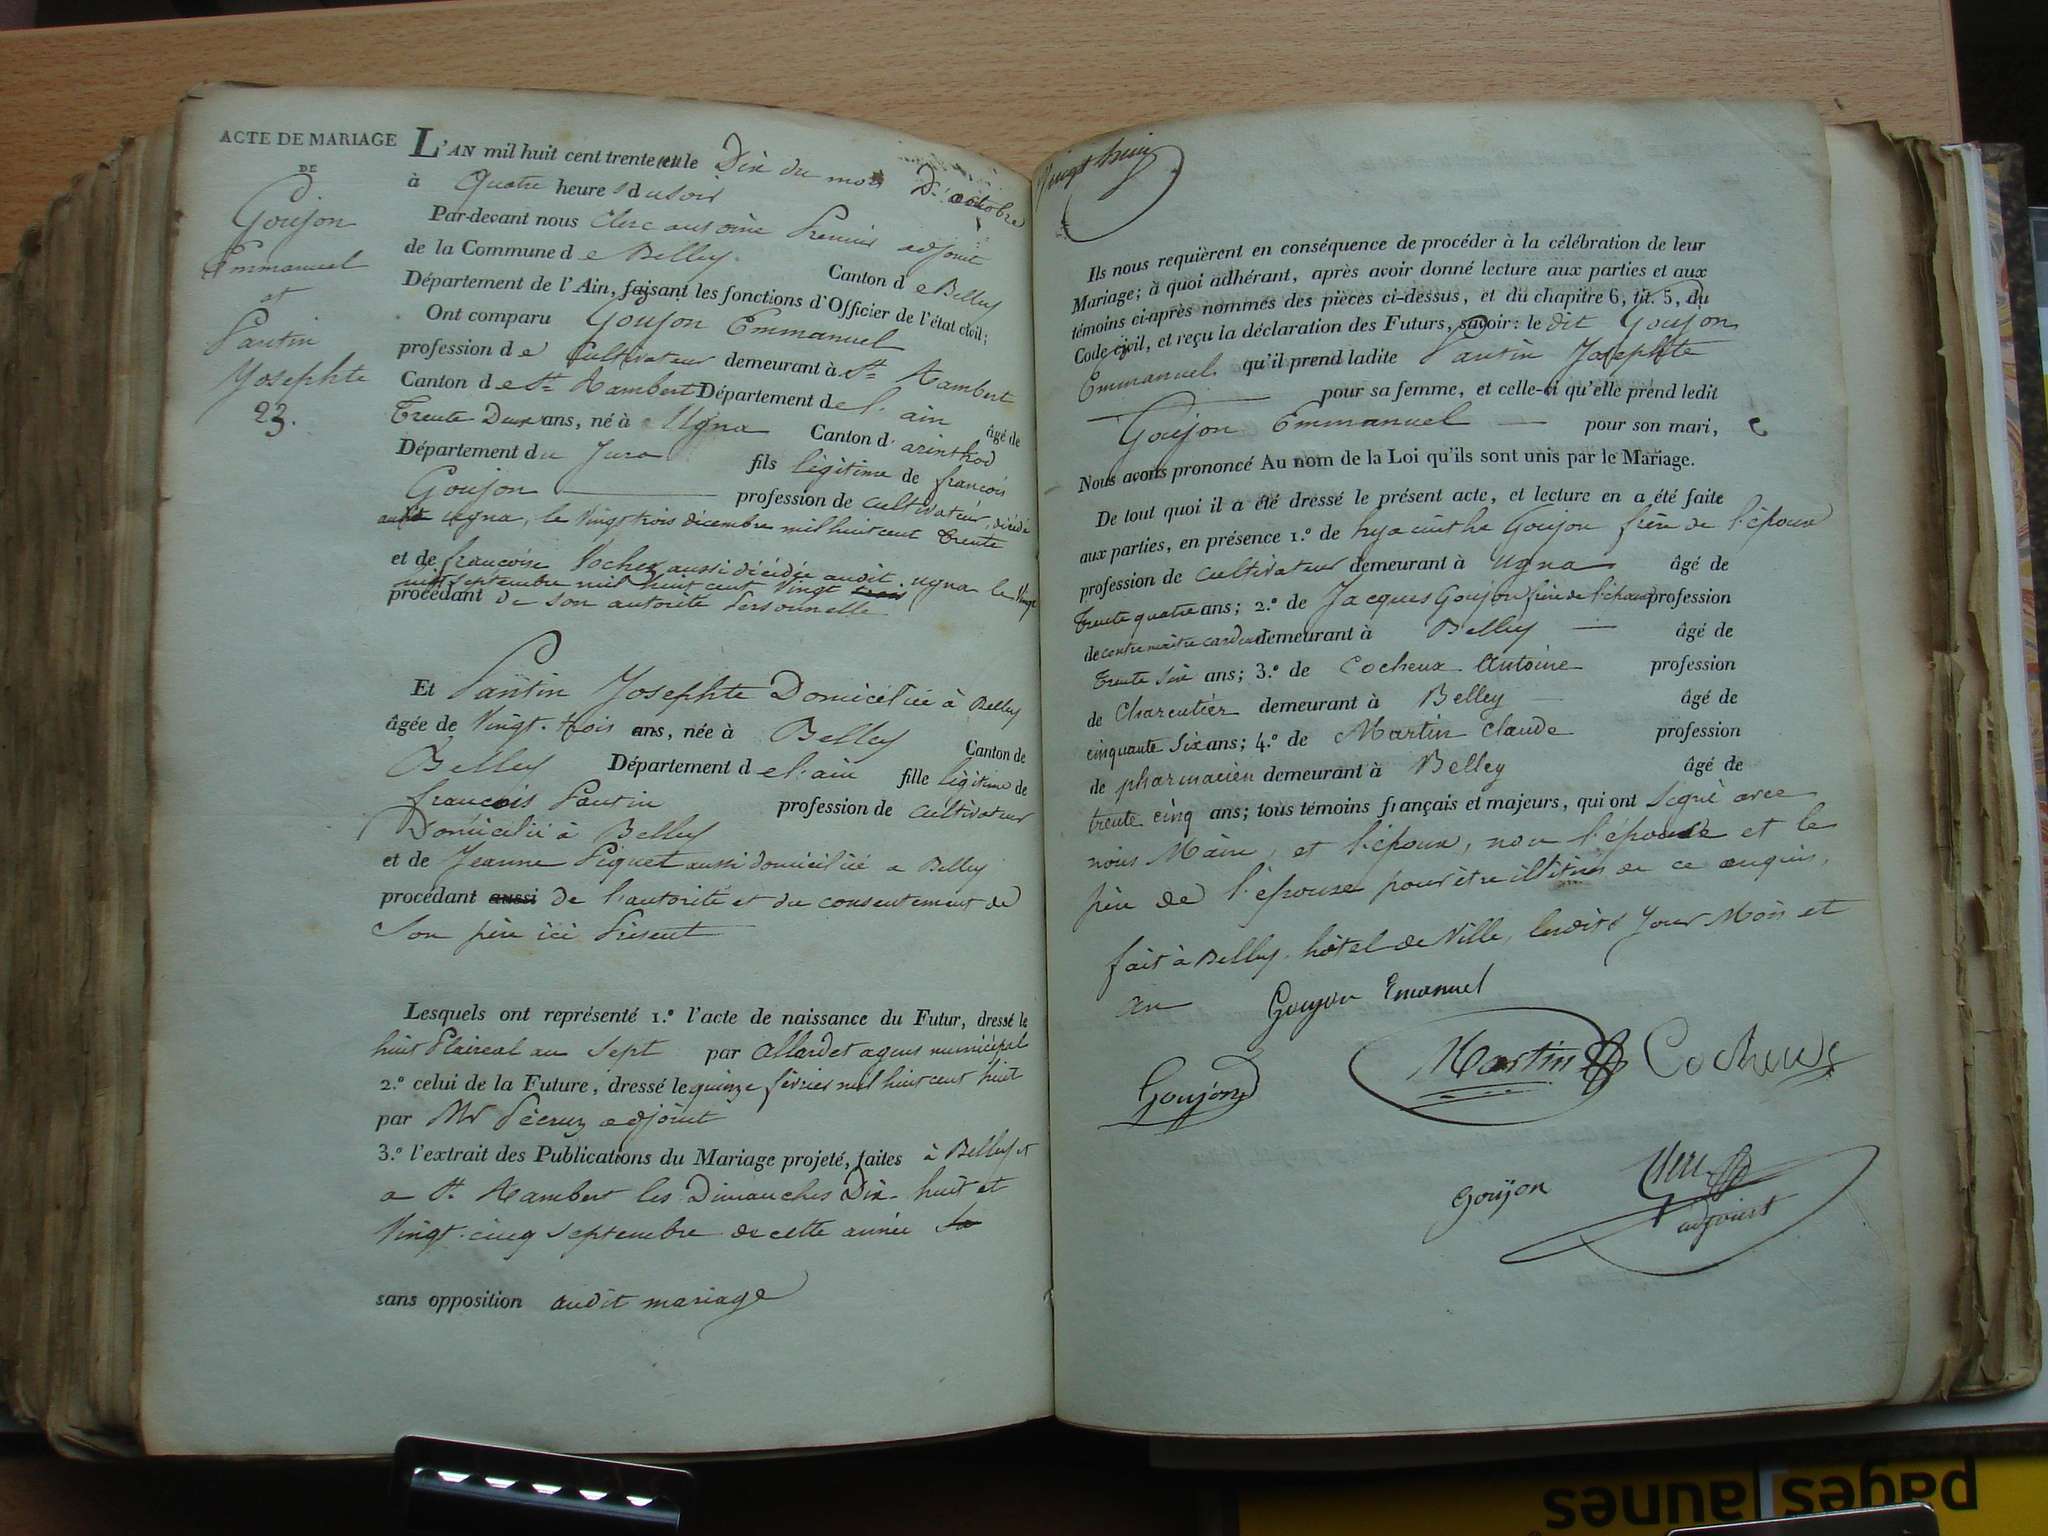 ACTE DE MARIAGE
DE
Goujon
Emmanuel
et
Pantin
Josephte
23.
L'AN mil huit cent trente un le Dix du mois D'octobre
à Quatre heures du soir
Par-devant nous Clerc antoine Premier adjoint
de la Commune de Belley. Canton de Belley
Département de l'Ain, faisant les fonctions d'Officier de l'état civil;
Ont comparu Goujon Emmanuel
profession de Cultivateur demeurant à St Rambert
Canton de St Rambert Département de l'ain âgé de
Trente Deux ans, né à Ugna Canton d'arinthod
Département du Jura fils légitime de francois
Goujon profession de cultivateur, décédé
audit Ugna, le Vingt trois décembre mil huit cent Trente
et de francoise Vocher aussi décédée audit ugna le Vingt
septembre mil huit cent Vingt
procédant de son autorité Personnelle
Et Pantin Josephte Domiciliée à Belley
âgée de Vingt-trois ans, née à Belley Canton de
Belley Département de l'ain fille légitime de
francois Pantin profession de cultivateur
Domicilié à Belley
et de Jeanne Piquet aussi domiciliée a Belley
procédant aussi de l'autorité et du consentement de
Son père ici Présent
Lesquels ont représenté 1.º l'acte de naissance du Futur, dressé le
huit floreal an Sept par Allardet agent municipal
2.º celui de la Future, dressé le quinze février mil huit cent huit
par Mr Pécruz adjoint
3.º l'extrait des Publications du Mariage projeté, faites à Belley et
a St. Rambert les Dimanches Dix-huit et
Vingt-cinq Septembre de cette année
sans opposition audit mariage
Vingt huit
Ils nous requièrent en conséquence de procéder à la célébration de leur
Mariage; à quoi adhérant, après avoir donné lecture aux parties et aux
témoins ci-après nommés des pièces ci-dessus, et du chapitre 6, tit. 5, du
Code civil, et reçu la déclaration des Futurs, savoir: le dit Goujon
Emmanuel qu'il prend ladite Pantin Josephte
pour sa femme, et celle-ci qu'elle prend ledit
Goujon Emmanuel pour son mari,
Nous avons prononcé Au nom de la Loi qu'ils sont unis par le Mariage.
De tout quoi il a été dressé le présent acte, et lecture en a été faite
aux parties, en présence 1.º de hyacinthe Goujon frère de l'époux
profession de cultivateur demeurant à Ugna âgé de
Trente quatre ans; 2.º de Jacques Goujon frère de l'époux profession
de contre maître cardeur demeurant à Belley âgé de
Trente Six ans; 3.º de Cocheux Antoine profession
de Charcutier demeurant à Belley âgé de
cinquante Six ans; 4.º de Martin Claude profession
de pharmacien demeurant à Belley âgé de
trente cinq ans; tous témoins français et majeurs, qui ont Signé avec
nous Maire, et l'époux, non l'épouse et le
père de l'épouse pour être illitérés de ce enquis,
fait à Belley, hôtel de Ville, lesdits Jour Mois et
an
Goujon Emanuel
Goujon
Martin
Cocheux
Goujon
Clerc
adjoint
pages
jaunes